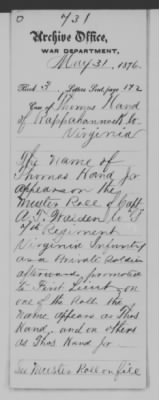 0 731
Archive Office,
WAR DEPARTMENT,
May 31, 1876.
Book 3, Letters Sent, page 172
Case of Thomas Rand
of Rappahannock Co
Virginia
The name of
Thomas Rand Jr
appears on the
Muster Roll of Capt
A. T.
7th Regiment
Virginia Infantry
as a Private Soldier
afterwards promoted
to First Lieut - on
one of the Rolls the
name appears as Thos
Rand, and on others
as Thos Rand Jr
See Muster Roll on file